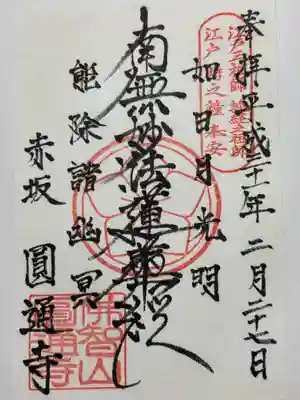 奉拝 平成三十一年 二月二十七日
江戸三祖師
江戸 時之鐘 本安
如日月光明
南無妙法蓮華経
能除諸幽冥
赤坂 圓通寺
佛智山
圓通寺